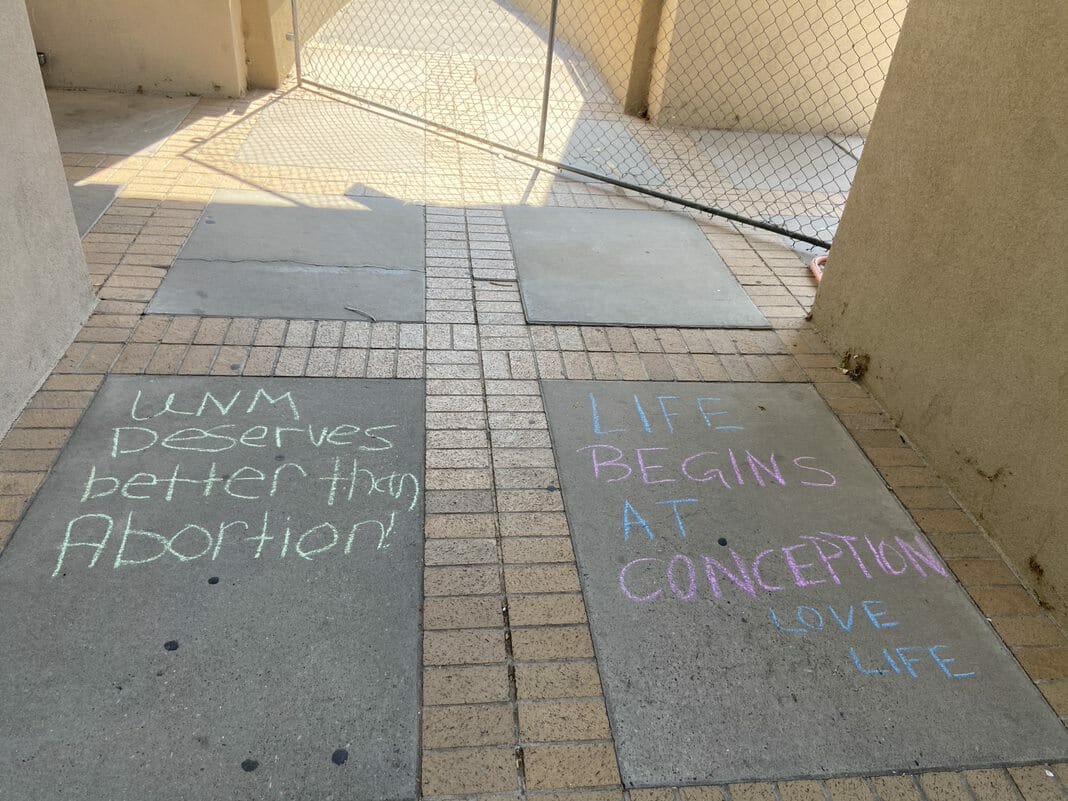 UNM
Deserves
better than
Abortion!
LIFE
BEGINS
AT
CONCEPTION
LOVE
LIFE